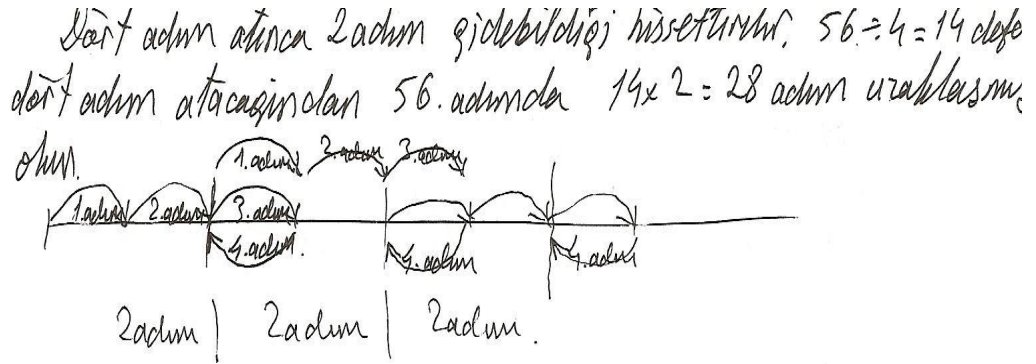 Dört adım atınca 2 adım gidebildiği hissettirilir. 56÷4=14 defa
dört adım atacağından 56. adımda 14x2=28 adım uzaklaşmış
olur.
1.adım 2.adım 3.adım
1.adım 2.adım 3.adım
4.adım 4.adım 4.adım
2adım 2adım 2adım.